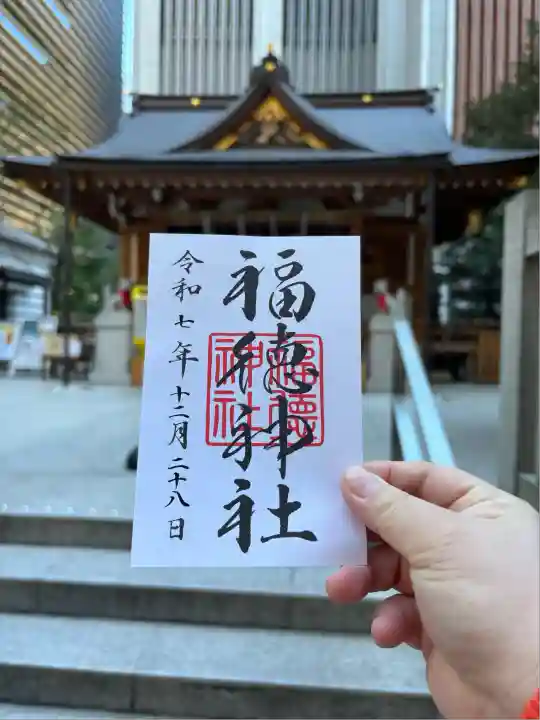 福徳神社
福徳神社
令和七年十二月二十八日